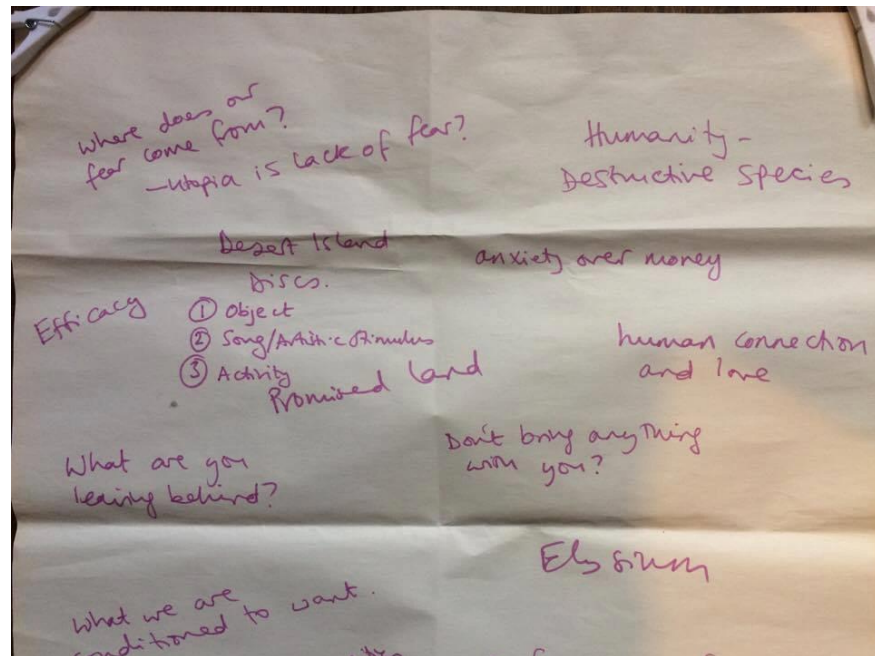 where does our
fear come from?
-utopia is lack of fear?
Humanity -
Destructive Species
Desert Island
Discs.
① Object
② Song/Artistic Stimulus
③ Activity
Efficacy
anxiety over money
Promised Land
human connection
and love
What are you
leaving behind?
Don't bring anything
with you?
Elysium
What we are
conditioned to want.